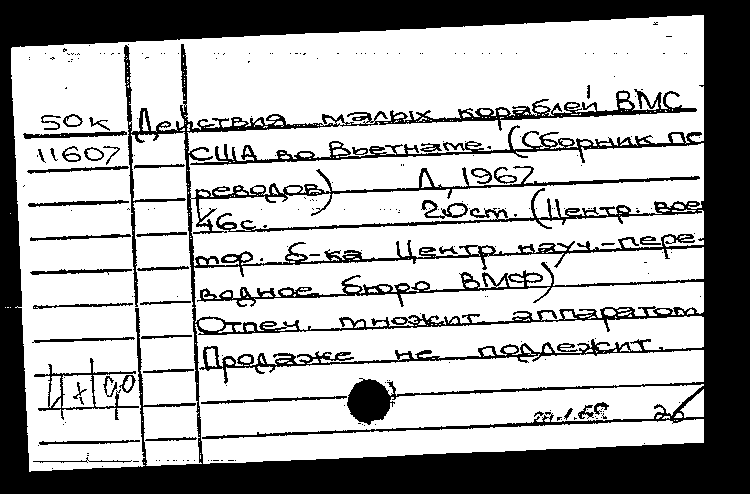 50к Действия малых кораблей ВМС
11607 США во Вьетнаме. (Сборник пе
реводов) Л., 1967
46с. 20см. (Центр. вое
мор. б-ка Центр. науч.-пере-
водное бюро ВМФ)
Отпеч. множит. аппаратом.
Продаже не подлежит.